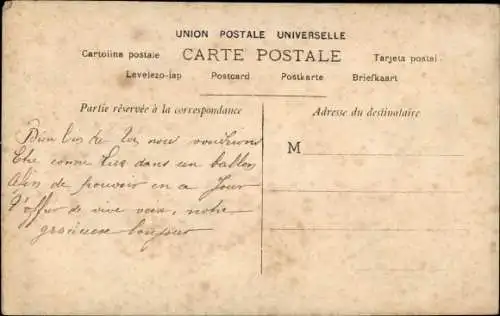 UNION POSTALE UNIVERSELLE
Cartolina postale CARTE POSTALE Tarjeta postal
Levelezo-lap Postcard Postkarte Briefkaart
Partie réservée à la correspondance
Adresse du destinataire
M
Bien loin de toi nous voudrions
Etre comme dans un ballon
Afin de pouvoir en ce jour
T'offrir de vive voix, notre
gracieux bonjour